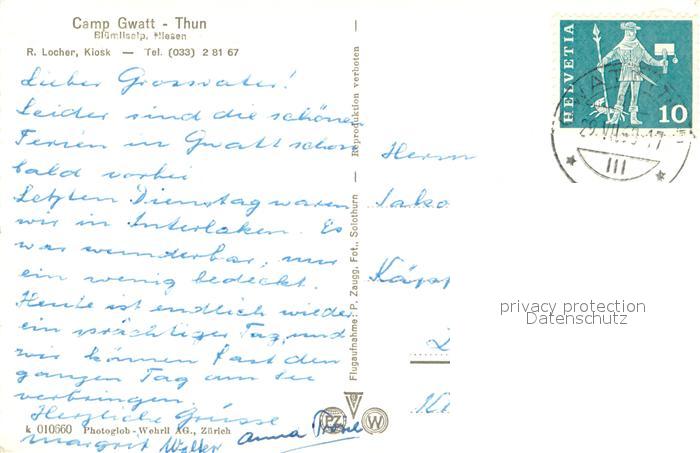 Camp Gwatt - Thun
Blümlisalp, Niesen
R. Locher, Kiosk — Tel. (033) 2 81 67
Lieber Grossvater!
Leider sind die schönen
Ferien in Gwatt schon
bald vorbei
Letzten Dienstag waren
wir in Interlaken. Es
war wunderbar, nur
ein wenig bedeckt.
Heute ist endlich wieder
ein prächtiger Tag, und
wir können fast den
ganzen Tag am See
verbringen.
Herzliche Grüsse
Margrit Walter Anna
k 010660 Photoglob-Wehrli AG., Zürich
Flugaufnahme: P. Zaugg, Fot., Solothurn — Reproduktion verboten —
PZ W
Herrn
Jako
Käpp
HELVETIA
10
III
privacy protection
Datenschutz